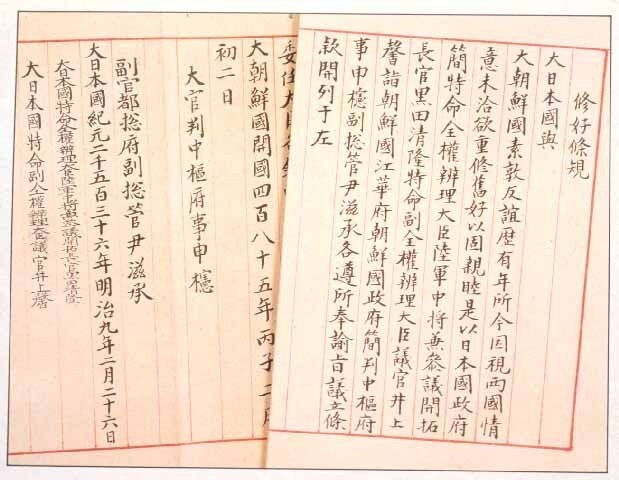 修好條規
大日本國與
大朝鮮國素敦友誼歷有年所今因視兩國情
意未洽欲重修舊好以固親睦是以日本國政府
簡特命全權辨理大臣陸軍中將兼參議開拓
長官黑田清隆特命副全權辨理大臣議官井上
馨詣朝鮮國江華府朝鮮國政府簡判中樞府
事申櫶副総管尹滋承各遵所奉諭旨議立條
款開列于左
委任大臣
大朝鮮國開國四百八十五年丙子二月
初二日
大官判中樞府事申櫶
副官都総府副総管尹滋承
大日本國紀元二千五百三十六年明治九年二月二十六日
大日本國特命全權辨理大臣陸軍中將兼參議開拓長官黑田清隆
大日本國特命副全權辨理大臣議官井上馨